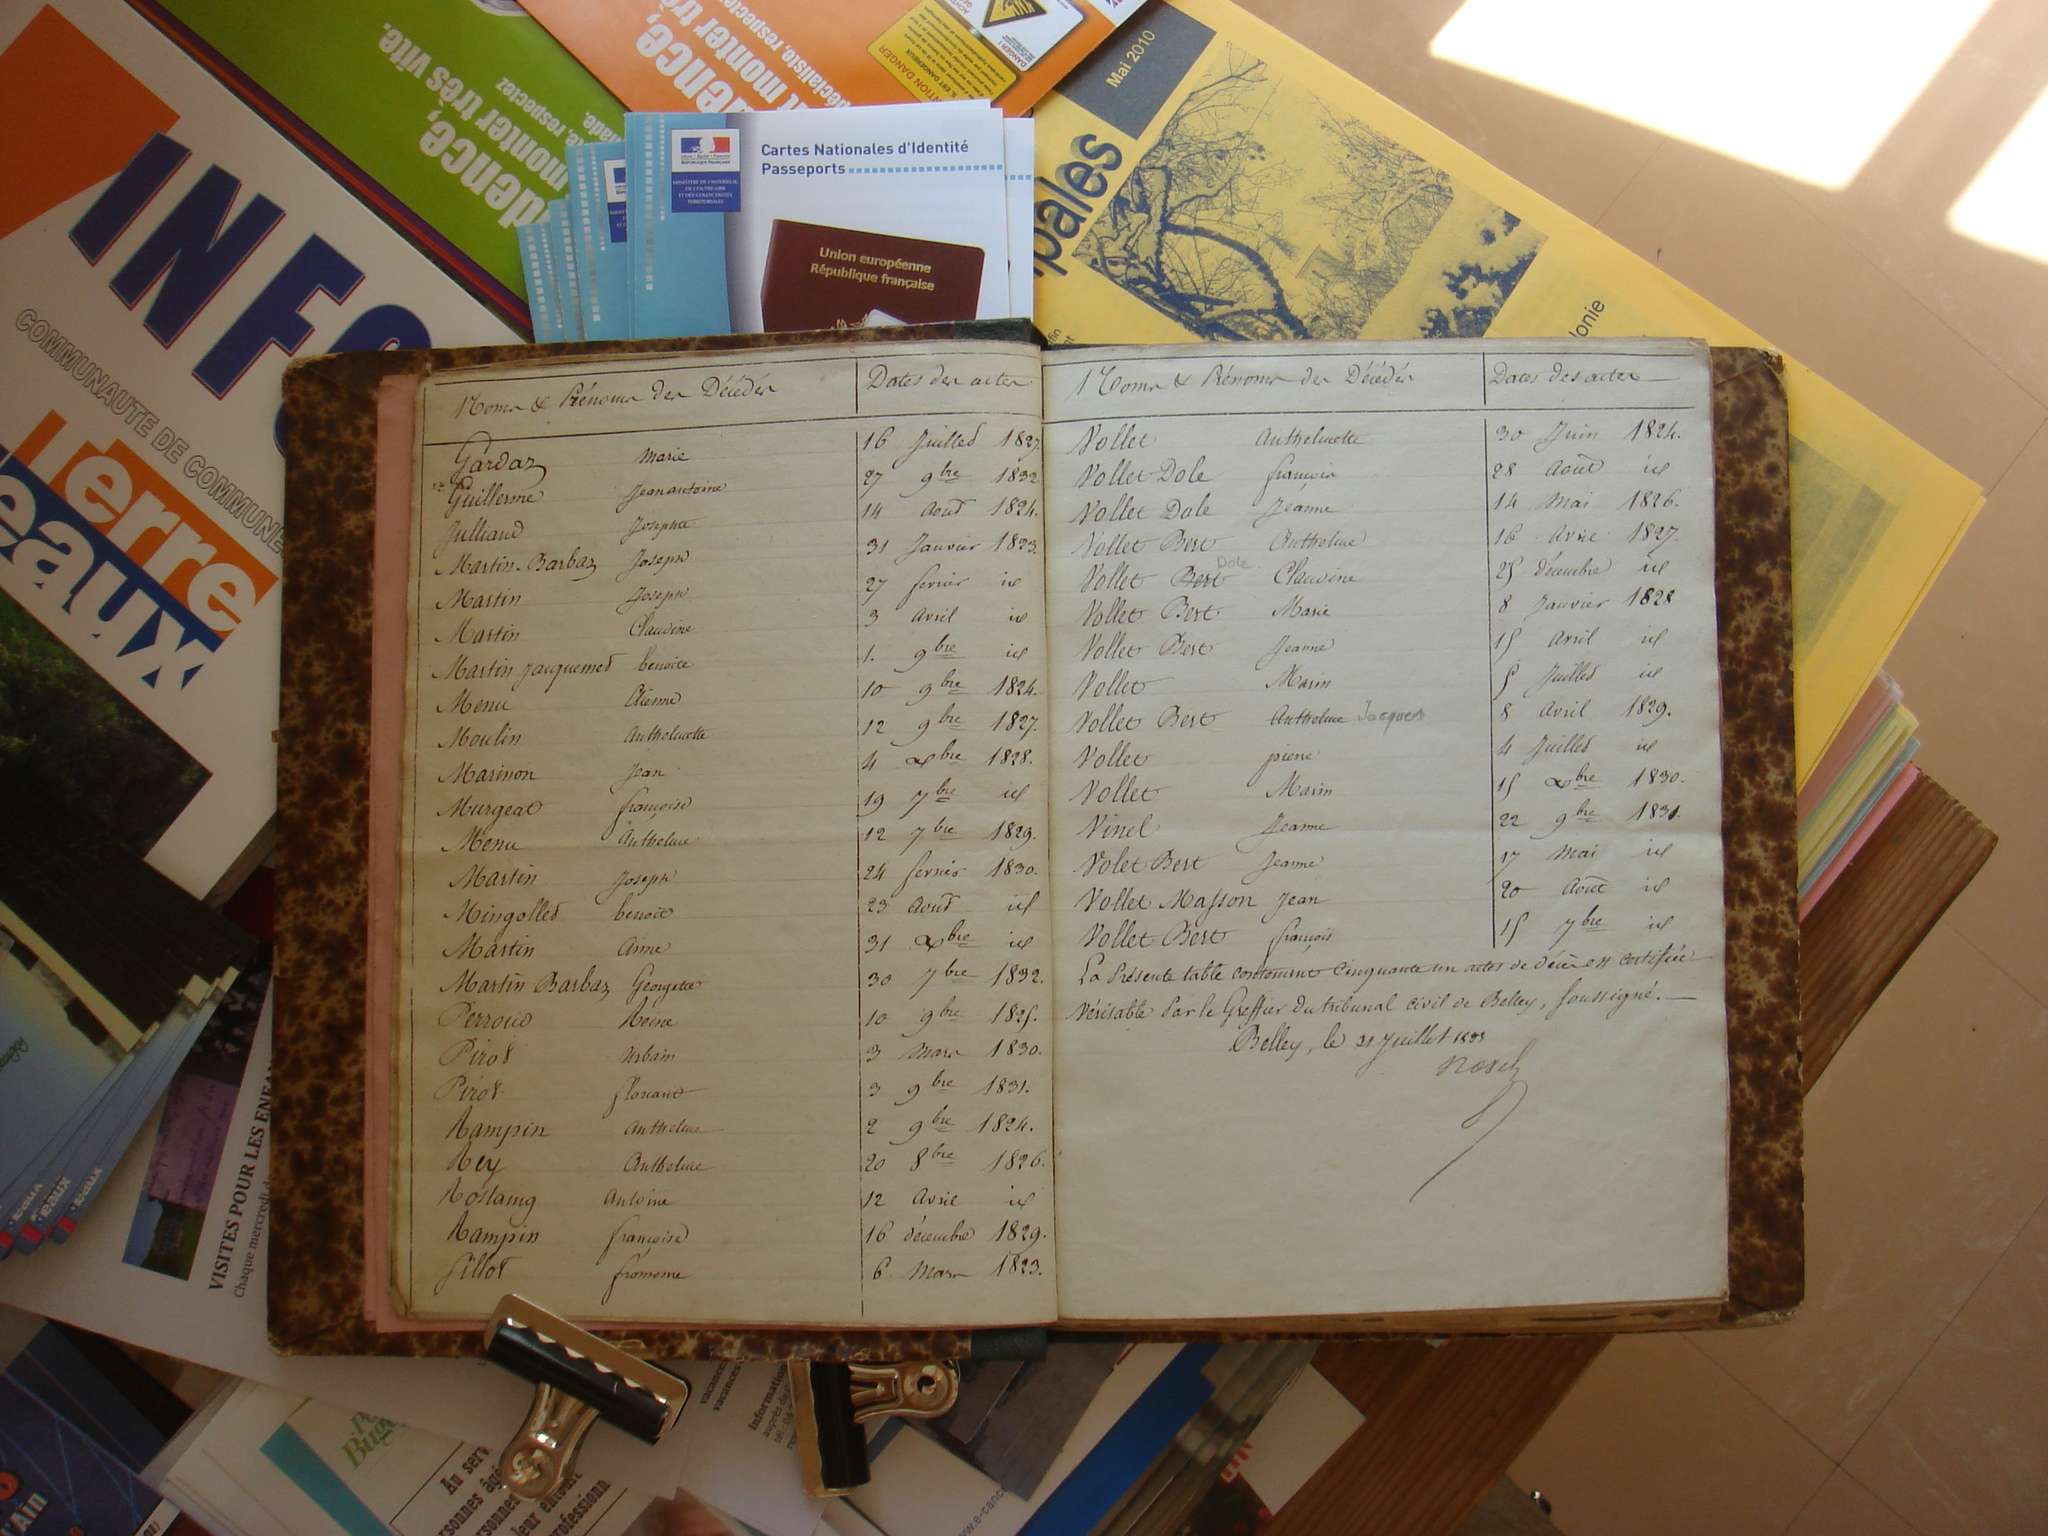 Mai 2010
INFO
COMMUNAUTE DE COMMUNE
Terre
eaux
dence,
monter très vite.
Cartes Nationales d'Identité
Passeports
RÉPUBLIQUE FRANÇAISE
Union européenne
République française
pales
lonie
Noms & Prénoms des Décédés Dates des actes
Gardaz Marie 16 Juillet 1827.
Guillerme Jeanantoine 27 9bre 1832
Julliand Josephte 14 Aout 1824.
Martin-Barbaz Joseph 31 Janvier 1823.
Martin Joseph 27 fevrier id
Martin Claudine 3 avril id
Martin Jacquemet benoite 1. 9bre id
Menu Etienne 10 9bre 1824.
Moulin Anthelmette 12 9bre 1827.
Marinon Jean 4 Xbre 1828.
Murgeat françoise 19 7bre id
Menu Anthelme 12 7bre 1829.
Martin Joseph 24 fevrier 1830.
Mingollet benoit 23 Aout id
Martin Anne 31 Xbre id
Martin Barbaz Georgette 30 7bre 1832.
Perroud Reine 10 9bre 1825.
Pirot Urbain 3 Mars 1830.
Pirot florian 3 9bre 1831.
Rampin Anthelme 2 9bre 1824.
Rey Anthelme 20 8bre 1826.
Rostaing Antoine 12 Avril id
Rampin françoise 16 décembre 1829.
Sillot 6 Mars 1823.
Noms & Prénoms des Décédés Dates des actes
Vollet Anthelmette 30 Juin 1824.
Vollet Dole françois 28 Août id
Vollet Dole Jeanne 14 Mai 1826.
Vollet Bert Anthelme 16 Avril 1827.
Dole
Vollet Bert Claudine 25 décembre id
Vollet Bert Marie 8 Janvier 1828
Vollet Bert Jeanne 15 Avril id
Vollet Marin 5 Juillet id
Vollet Bert Anthelme Jacques 8 Avril 1829.
Vollet pierre 4 Juillet id
Vollet Marin 15 Xbre 1830.
Vinel Jeanne 22 9bre 1831.
Volet Bert Jeanne 17 Mai id
Vollet Masson Jean 20 Août id
Vollet Bert françois 15 7bre id
La Présente table contenant Cinquante un actes de décès est certifiée
Véritable Par le Greffier du tribunal Civil de Belley, soussigné.
Belley, le 31 Juillet 1833
VISITES POUR LES ENFAN
Chaque mercredi d
Bug
Au serv
ersonnes âgé
ersonnes
leur ento
professionn
Information
vacances
l'Ain
www.e-canc